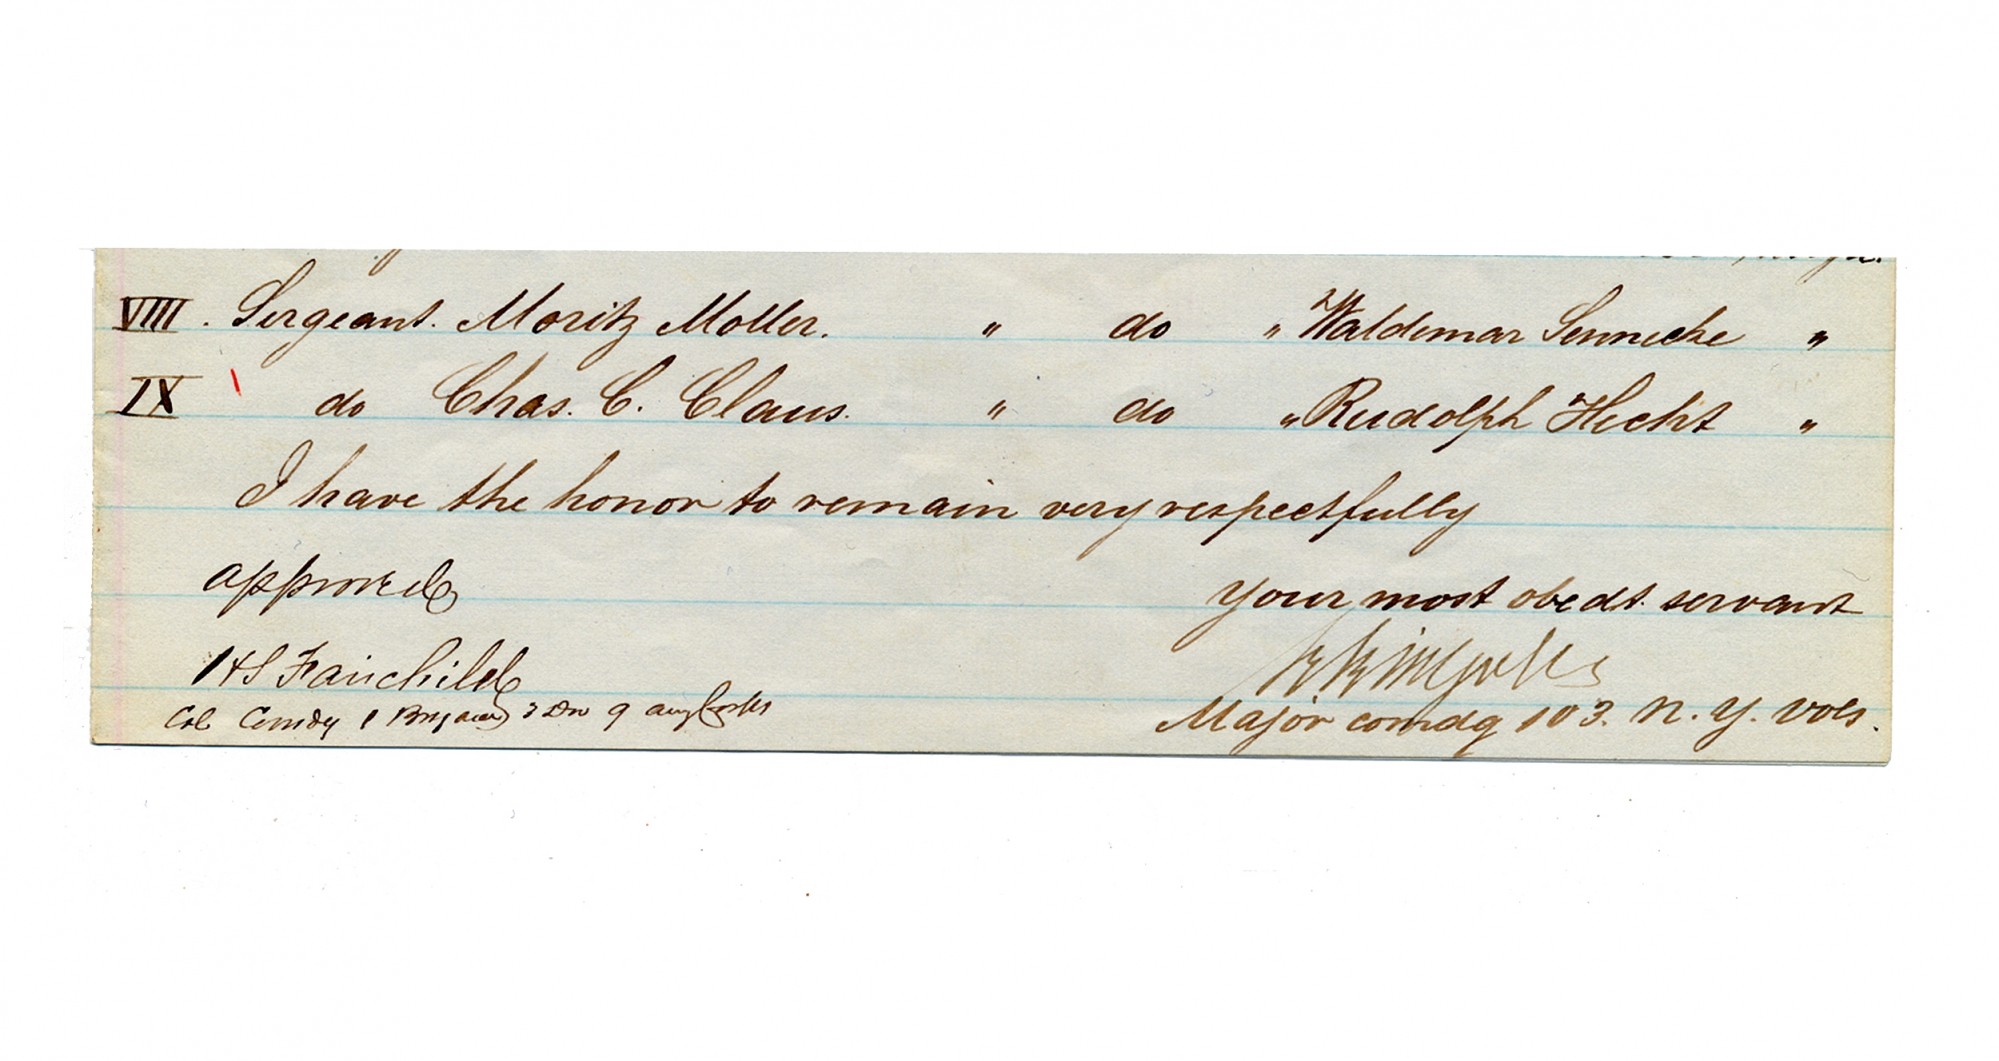 VIII. Sergeant. Moritz Moller. " do " Waldemar Sennecke "
IX do Chas. C. Claus. " do " Rudolph Hecht "
I have the honor to remain very respectfully
approved
your most obedt. servant
HS Fairchild
Col Comdg 1 Brigade 3 Div 9 army Corps
Major comdg 103. N. Y. Vols.